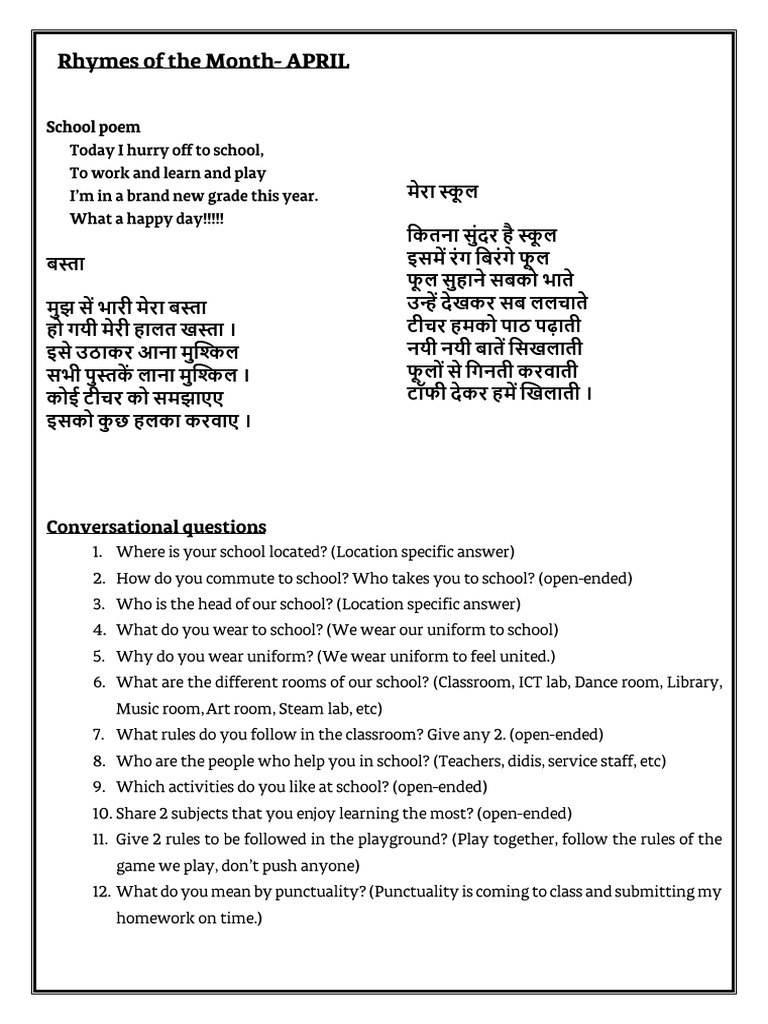 Rhymes of the Month- APRIL
School poem
Today I hurry off to school,
To work and learn and play
I'm in a brand new grade this year.
What a happy day!!!!!
बस्ता
मुझ सें भारी मेरा बस्ता
हो गयी मेरी हालत खस्ता ।
इसे उठाकर आना मुश्किल
सभी पुस्तकें लाना मुश्किल ।
कोई टीचर को समझाएए
इसको कुछ हलका करवाए ।
मेरा स्कूल
कितना सुंदर है स्कूल
इसमें रंग बिरंगे फूल
फूल सुहाने सबको भाते
उन्हें देखकर सब ललचाते
टीचर हमको पाठ पढ़ाती
नयी नयी बातें सिखलाती
फूलों से गिनती करवाती
टॉफी देकर हमें खिलाती ।
Conversational questions
1. Where is your school located? (Location specific answer)
2. How do you commute to school? Who takes you to school? (open-ended)
3. Who is the head of our school? (Location specific answer)
4. What do you wear to school? (We wear our uniform to school)
5. Why do you wear uniform? (We wear uniform to feel united.)
6. What are the different rooms of our school? (Classroom, ICT lab, Dance room, Library,
Music room, Art room, Steam lab, etc)
7. What rules do you follow in the classroom? Give any 2. (open-ended)
8. Who are the people who help you in school? (Teachers, didis, service staff, etc)
9. Which activities do you like at school? (open-ended)
10. Share 2 subjects that you enjoy learning the most? (open-ended)
11. Give 2 rules to be followed in the playground? (Play together, follow the rules of the
game we play, don't push anyone)
12. What do you mean by punctuality? (Punctuality is coming to class and submitting my
homework on time.)